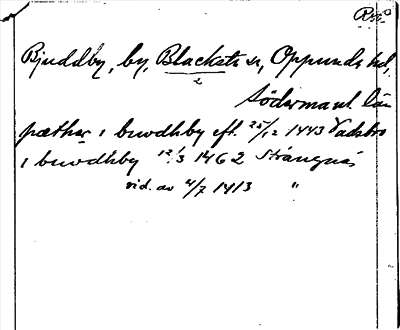 Bjuddby, by, Blacksta sn, Oppunda hd,
2
Södermanl. län
pæthar i biwdhby eft. 25/12 1443 Vadsbro
i biwdhby 12/3 1462 Strängnäs
vid. av 4/7 1413 "